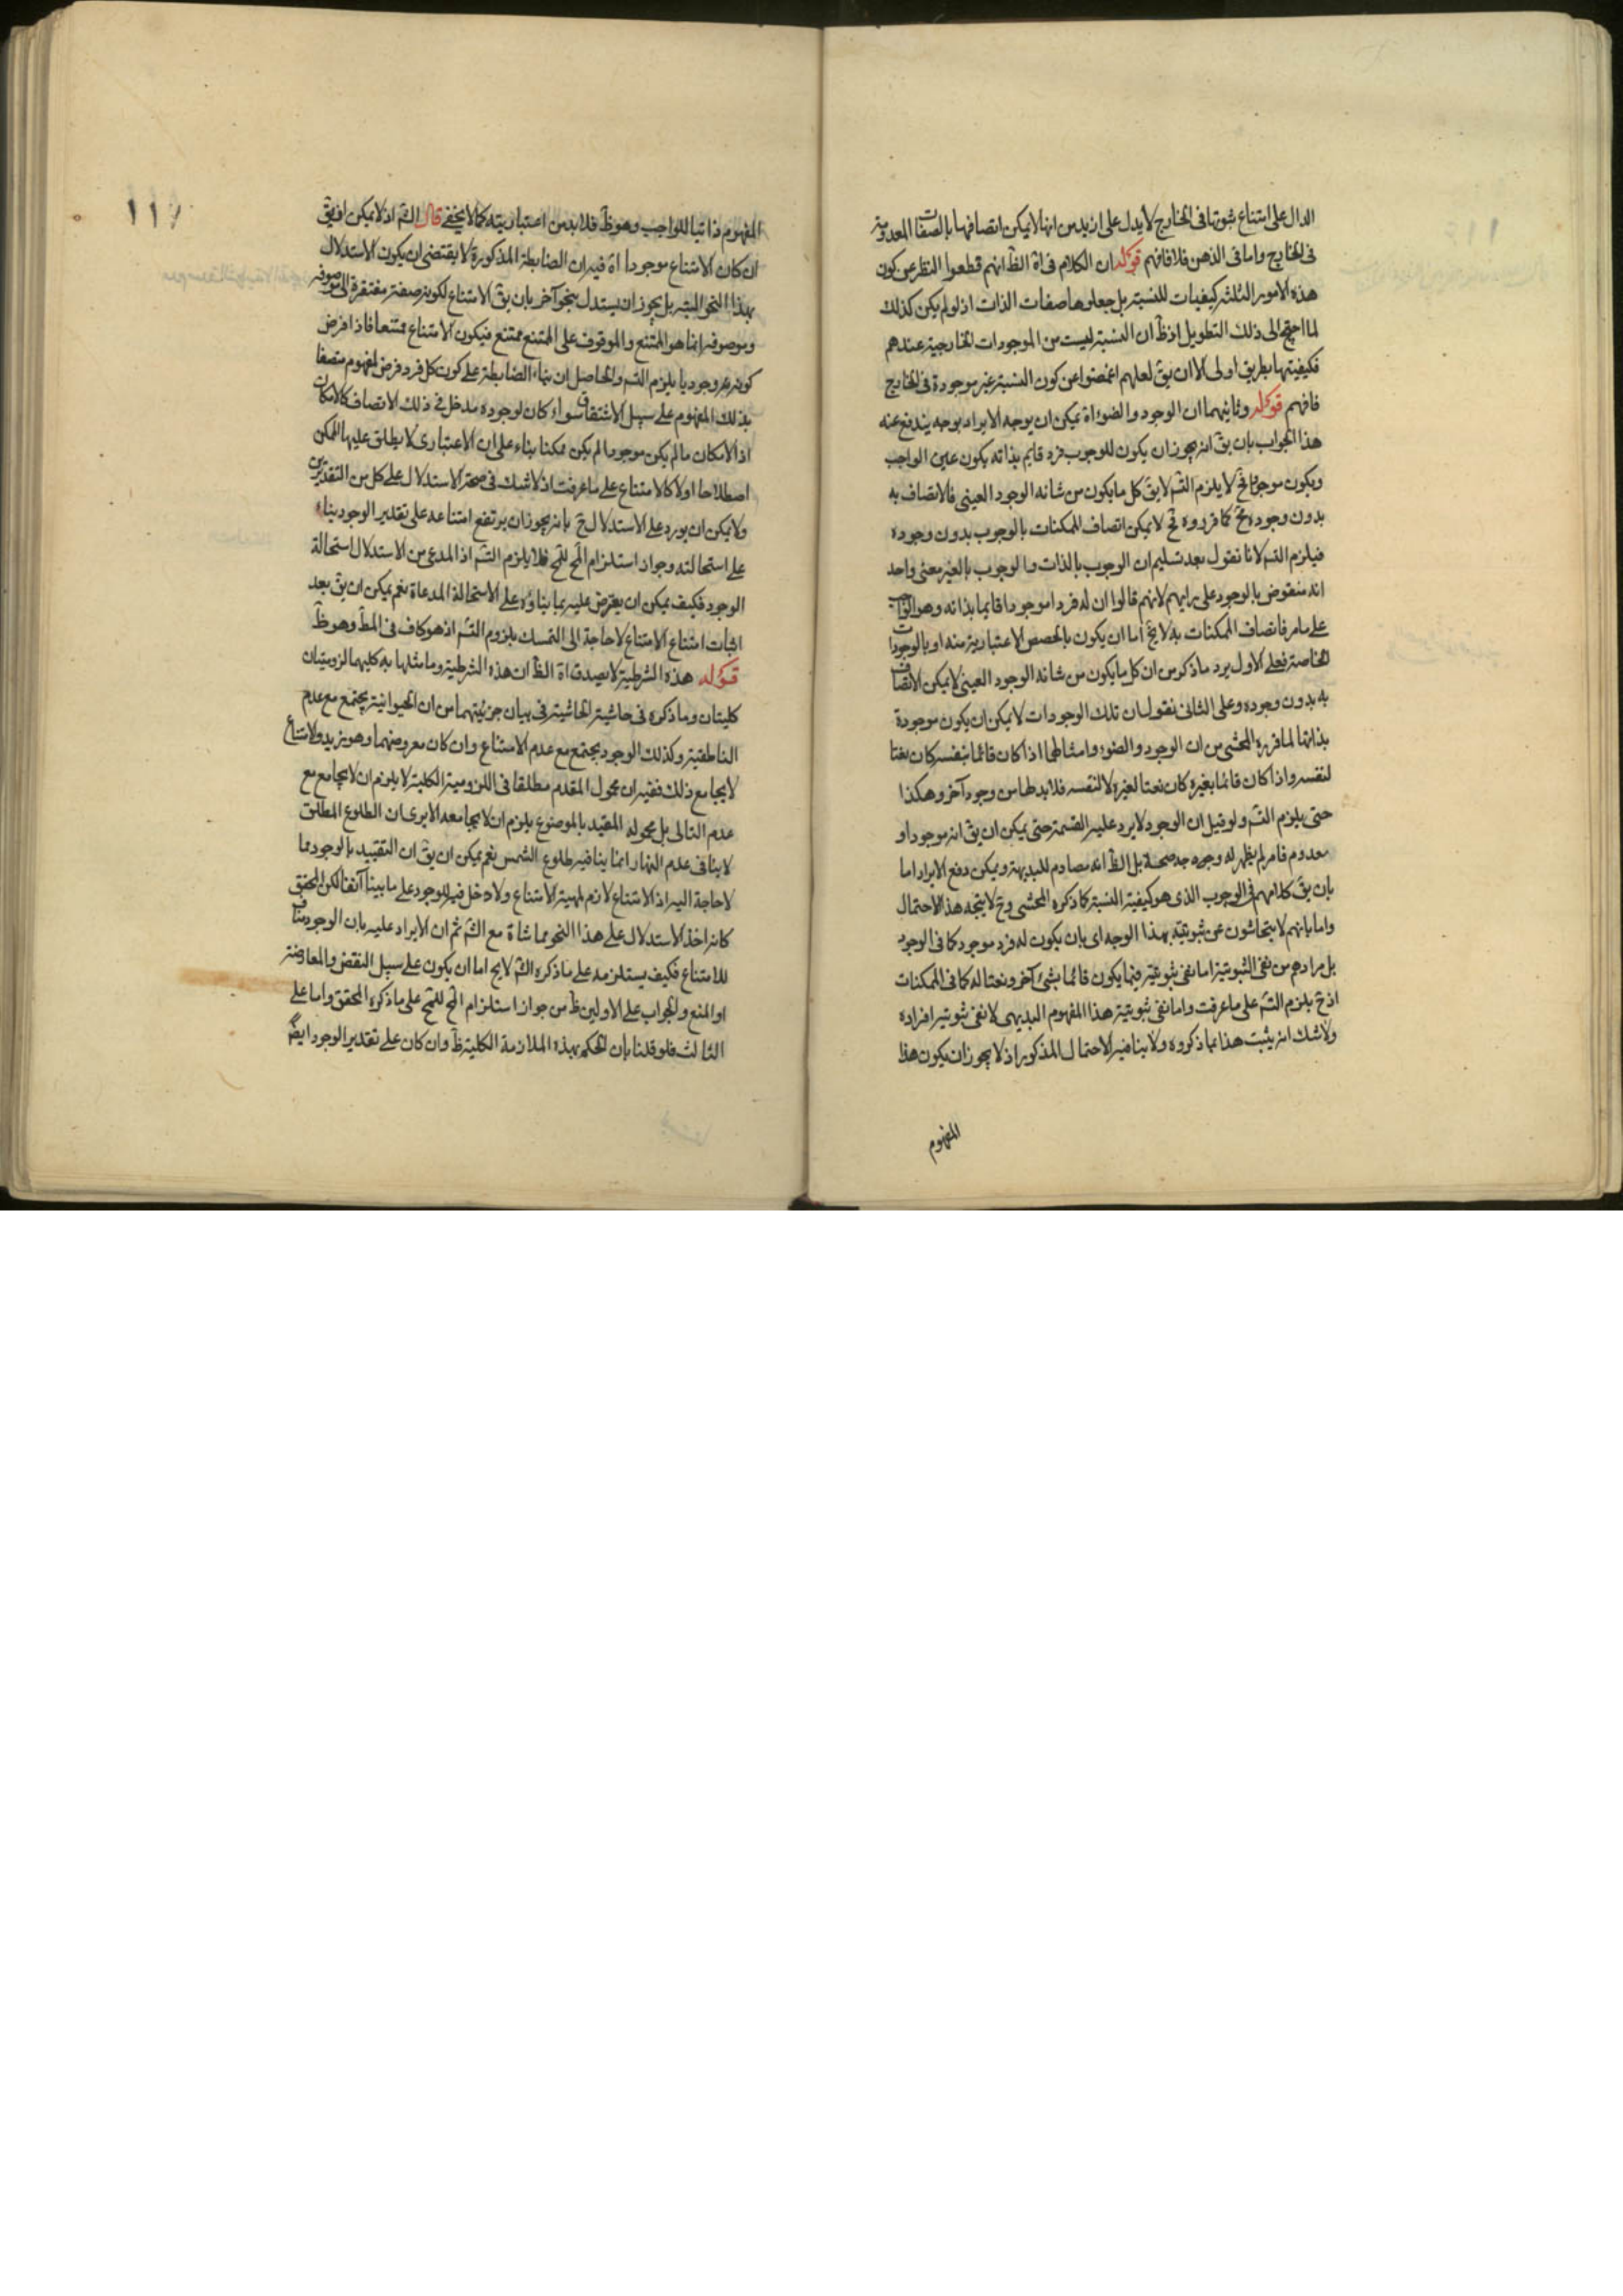 الدال على امتناع ثبوتها فى الخارج لا يدل على ازيد من انها لا يمكن اتصافها بالصفات المعدومة
فى الخارج واما فى الذهن فلا فافهم قوله ان الكلام فى اه الظ انهم قطعوا النظر عن كون
هذه الامور الثلثة كيفيات للنسبة بل جعلوها صفات الذات اذ لو لم يكن كذلك
لما احتج الى ذلك التطويل اذ ظ ان النسبة ليست من الموجودات الخارجية عندهم
فكيفيتها بطريق اولى الا ان يق لعلهم اغمضوا عن كون النسبة غير موجودة فى الخارج
فافهم قوله وثانيهما ان الوجود والضوء اه يمكن ان يوجه الايراد بوجه يندفع عنه
هذا الجواب بان يق انه يجوز ان يكون للوجوب فرد قايم بذاته يكون عين الواجب
ويكون موجودا فح لا يلزم التس لا يق كل ما يكون من شانه الوجود العينى فالاتصاف به
بدون وجوده مح كما قرروه فح لا يمكن اتصاف الممكنات بالوجوب بدون وجوده
فيلزم التس لانا نقول بعد تسليم ان الوجوب بالذات والوجوب بالغير معنى واحد
انه منقوض بالوجود على رايهم لانهم قالوا ان له فردا موجودا قايما بذاته وهو الواجب
على ما مر فاتصاف الممكنات به لا يخ اما ان يكون بالحصص الاعتبارية منه او بالوجودات
الخاصة فعلى الاول يرد ما ذكر من ان كل ما يكون من شانه الوجود العينى لا يمكن الاتصاف
به بدون وجوده وعلى الثانى نقول ان تلك الوجودات لا يمكن ان يكون موجودة
بذاتها لما قرره المحشى من ان الوجود والضوء وامثالهما اذا كان قائما بنفسه كان نعتا
لنفسه واذا كان قائما بغيره كان نعتا لغيره لا لنفسه فلا بد لها من وجود آخر وهكذا
حتى يلزم التس ولو قيل ان الوجود لا يرد عليه القسمة حتى يمكن ان يق انه موجود او
معدوم فامر لم يظهر له وجه صحة بل الظ انه مصادم للبديهة ويمكن دفع الايراد اما
بان يق كلامهم فى الوجوب الذى هو كيفية النسبة كما ذكره المحشى وح لا يتجه هذا الاحتمال
واما بانهم لا يتحاشون عن ثبوتيته بهذا الوجه اى بان يكون له فرد موجود كما فى الوجود
بل مرادهم من نفى الثبوتية اما نفى ثبوتيته فيما يكون قائما بشئ آخر ونعتا له كما فى الممكنات
اذ ح يلزم التس على ما عرفت واما نفى ثبوتية هذا المفهوم البديهى لا نفى ثبوتية افراده
ولا شك انه يثبت هذا بما ذكروه ولا ينافيه الاحتمال المذكور اذ لا يجوز ان يكون هذا
المفهوم
١١٧
المفهوم ذاتيا للواجب وهو ظ فلا بد من اعتباريته كما لا يخفى قال الش اذ لا يمكن
ان كان الامتناع موجودا اه فيه ان الضابطة المذكورة لا يقتضى ان يكون الاستدلال
بهذا النحو البتة بل يجوز ان يستدل بنحو آخر بان يق الامتناع لكونه صفة مفتقرة الى موصوفه
وموصوفه انما هو الممتنع والموقوف على الممتنع ممتنع فيكون الامتناع ممتنعا فاذا فرض
كونه وجوديا يلزم التس والحاصل ان بناء الضابطة على كون كل فرد فرض لمفهوم متصفا
بذلك المفهوم على سبيل الاشتقاق سواء كان لوجوده مدخل فى ذلك الاتصاف كالامكان
اذ الامكان ما لم يكن موجودا لم يكن ممكنا بناء على ان الاعتبارى لا يطلق عليها الممكن
اصطلاحا اولا كالامتناع على ما عرفت اذ لا شك فى صحة الاستدلال على كل من التقديرين
ولا يمكن ان يورد على الاستدلال ح بانه يجوز ان يرتفع امتناعه على تقدير الوجود بناء
على استحالته وجواز استلزام المح للمح فلا يلزم التس اذ المدعى من الاستدلال استحالة
الوجود فكيف يمكن ان يعترض عليه بما بناؤه على الاستحالة المدعاة نعم يمكن ان يق بعد
اثبات امتناع الامتناع لا حاجة الى التمسك بلزوم التس اذ هو كاف فى المط وهو ظ
قوله هذه الشرطية لا يصدق اه الظ ان هذه الشرطية وما مثلها به كليهما لزوميتان
كليتان وما ذكره فى حاشية الحاشية فى بيان جزئيتهما من ان الحيوانية يجتمع مع عدم
الناطقية وكذلك الوجود يجتمع مع عدم الامتناع وان كان معروضهما وهو زيد والامتناع
لا يجامع ذلك ففيه ان محمول المقدم مطلقا فى اللزومية الكلية لا يلزم ان لا يجامع مع
عدم التالى بل محموله المقيد بالموضوع يلزم ان لا يجامعه الا يرى ان الطلوع المطلق
لا ينافى عدم النهار انما ينافيه طلوع الشمس نعم يمكن ان يق ان التقييد بالوجود مما
لا حاجة اليه اذ الامتناع لازم لمهية الامتناع ولا دخل فيه للوجود على ما بينا آنفا لكن المحقق
كانه اخذ الاستدلال على هذا النحو مماشاة مع الش ثم ان الايراد عليه بان الوجود مناف
للامتناع فكيف يستلزمه على ما ذكره الش لا يخ اما ان يكون على سبيل النقض والمعارضة
او المنع والجواب على الاولين ظ من جواز استلزام المح للمح على ما ذكره المحقق واما على
الثالث فلو قلنا بان الحكم بهذه الملازمة الكلية ظ وان كان على تقدير الوجود ايض